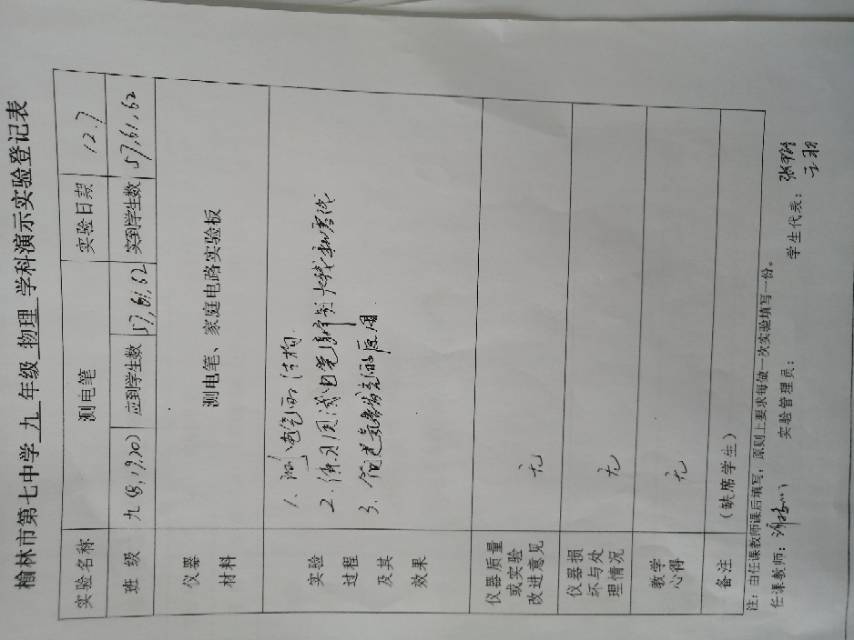 榆林市第七中学 九 年级 物理 学科演示实验登记表
实验名称 测电笔 实验日期 12.7
班 级 九(8,19,20) 应到学生数 57,61,62 实到学生数 57,61,62
仪器 材料 测电笔、家庭电路实验板
实验 过程 及其 效果
1、测电笔的结构
2、练习用测电笔辨别火线和零线
3、
仪器质量 或实验 改进意见 无
仪器损 坏与处 理情况 无
教学 心得 无
备注 (缺席学生)
注:由任课教师课后填写,原则上要求每做一次实验填写一份。
任课教师: 实验管理员: 学生代表: